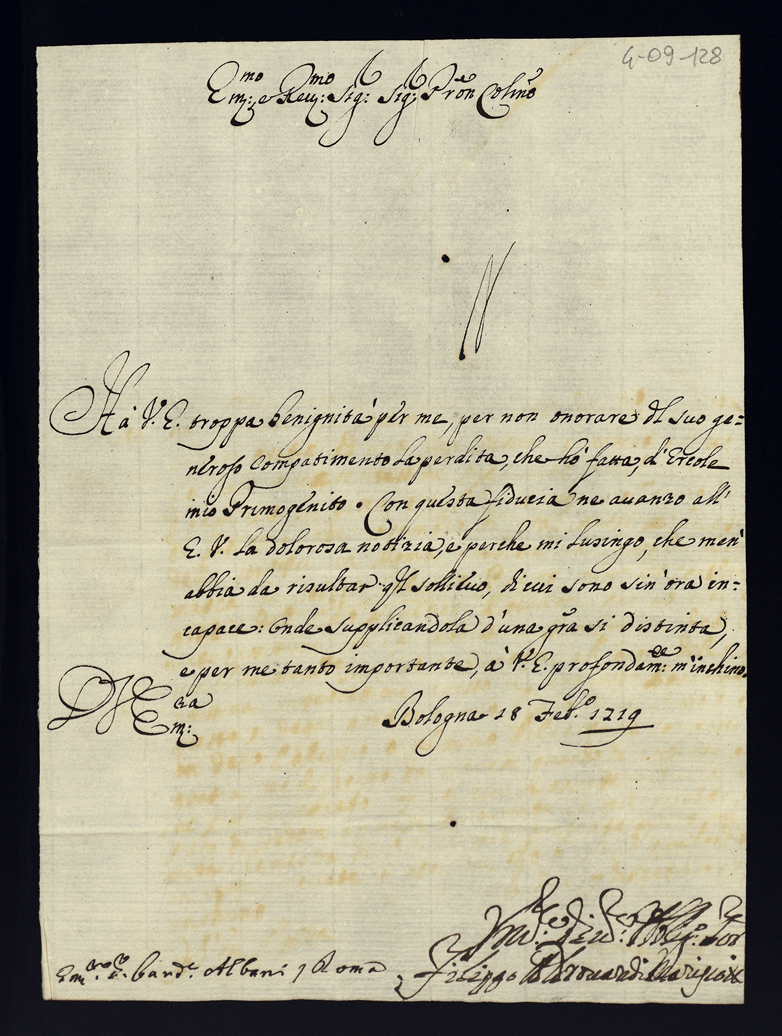 4-09-128
Em:mo e Reu:mo Sig: Sig: Prōn Colmo
Hà V. E. troppa benignità per me, per non onorare dl suo ge=
neroso Compatimento la perdita, che hò fatta, d'Ercole
mio Primogenito. Con questa fiducia ne auanzo all'
E. V. la dolorosa notizia, e perche mi lusingo, che men'
abbia da risultar ql sollieuo, di cui sono sin'ora in=
capace: Onde supplicandola d'una gr̄a si distinta,
e per me tanto importante, à V. E. profondam:te m'inchino,
D V Em:za
Bologna 18 Feb.o 1719
Filippo
Em:mo S. Card.e Albani / Roma